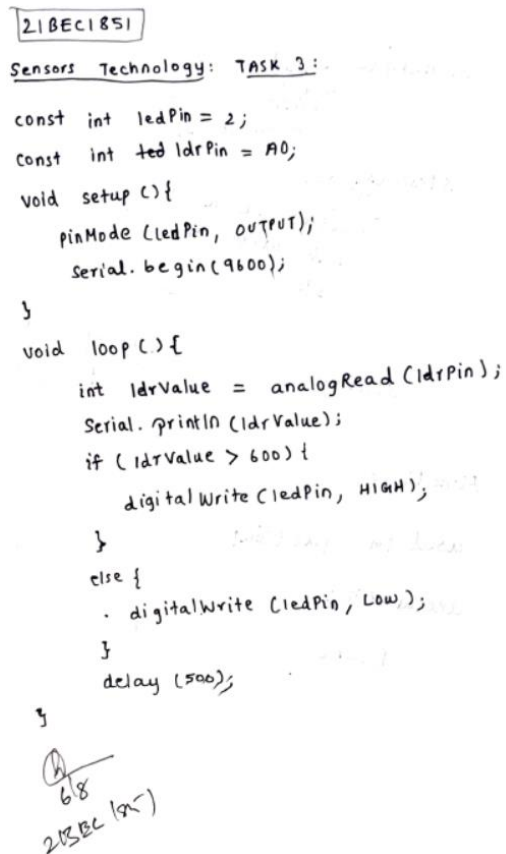 21BEC1851
Sensors Technology: TASK 3:
const int ledPin = 2;
const int ted ldrPin = A0;
void setup (){
pinMode (ledPin, OUTPUT);
Serial. begin(9600);
}
void loop () {
int ldrValue = analogRead (ldrPin);
Serial. println (ldrValue);
if (ldrValue > 600) {
digitalWrite (ledPin, HIGH);
}
else {
. digitalWrite (ledPin, LOW);
}
delay (500);
}
6/8